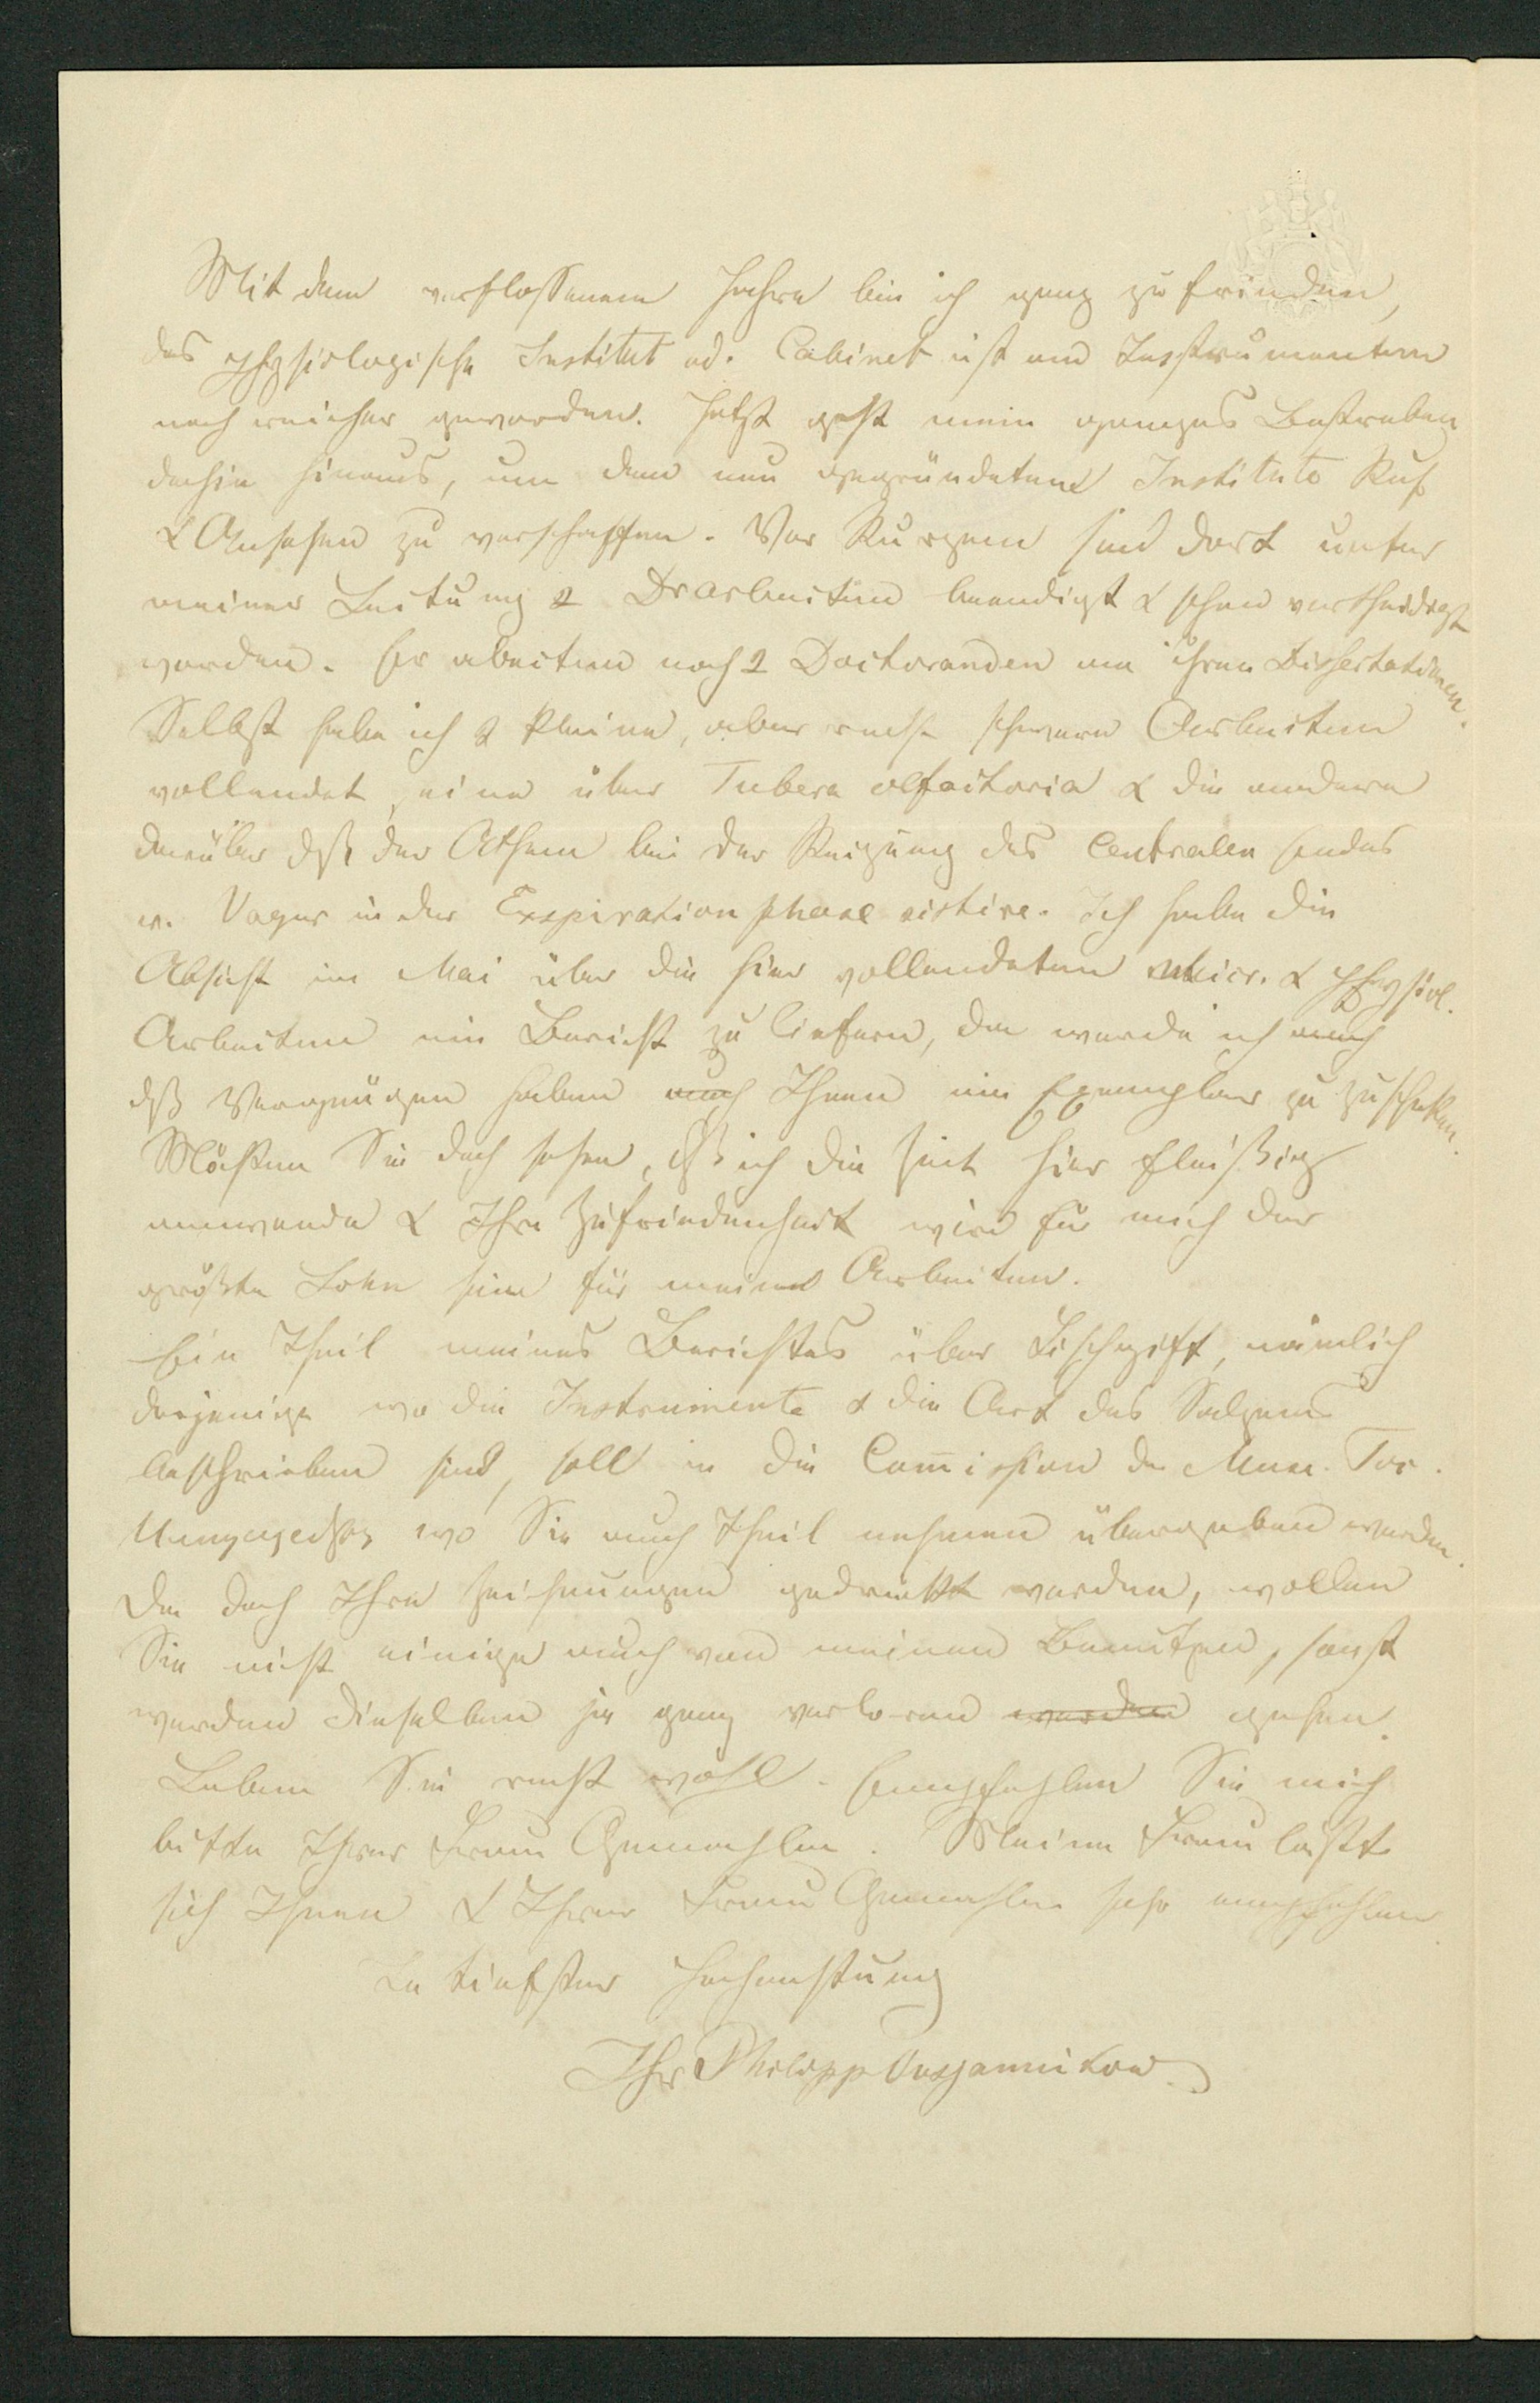 Mit dem verflossenem Jahre bin ich ganz zufrieden,
das physiologische Institut od. Cabinet ist an Instrumenten
noch reicher geworden. Jetzt geht mein ganzes Bestreben
dahin hinaus, um dem neu gegründeten Institute Ruf
& Ansehen zu verschaffen. Vor Kurzem sind dort unter
meiner Leitung 2 Drarbeiten beendigt & schon vertheidigt
worden. Er abeiten noch 2 Doctoranden an ihren Dissertationen.
Selbst habe ich 2 kleine, aber recht schwere Arbeiten
vollendet, eine über Tubera olfactoria & die andere
darüber dß der Athem bei der Reizung des centralen Endes
v. Vagus in der Exspiration phase sistire. Ich habe die
Absicht im Mai über die hier vollendeten micr. & physiol.
Arbeiten ein Bericht zu liefern, da werde ich auch
dß Vergnügen haben auch Ihnen ein Exemplar zu zuschicken.
Möchten Sie doch sehen, dß ich die Zeit hier fleißig
anwende & Ihre Zufriedenheit wird für mich der
größte Lohn sein für meine Arbeiten.
Ein Theil meines Berichtes über Fischgift, nämlich
derjenige wo die Instrumente & die Art des Salzens
beschrieben sind, soll in die Com̅ission der
wo Sie auch Theil nehmen übergeben werden.
Da doch Ihre Zeichnungen gedruckt werden, wollen
Sie nicht einige auch von meinen Benutzen, sonst
werden dieselben ja ganz verloren werden gehen.
Leben Sie recht wohl. Empfehlen Sie mich
bitte Ihrer Frau Gemahlin. Meine Frau läßt
sich Ihnen & Ihrer Frau Gemahlin sehr empfehlen
In tiefster Hochachtung
Ihr Philipp Owsjannikow